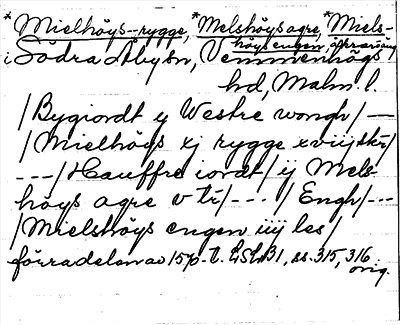 *Mielhöys-rygge, *Melshöys agre, *Miels-
höys engen, åkrar o äng
i Södra Åby sn, Vemmenhögs
hd, Malm. l.
/Bygiordt ij Westre wongh/ —
/Mielhöys xj rygge xviij skr/
---/Hauffre iordt/ij Mels-
höys agre v tr/---/Engh/---
/Mielshöys engen iiij les/
förra delen av 1570-t. LSLB1, ss. 315, 316
orig.